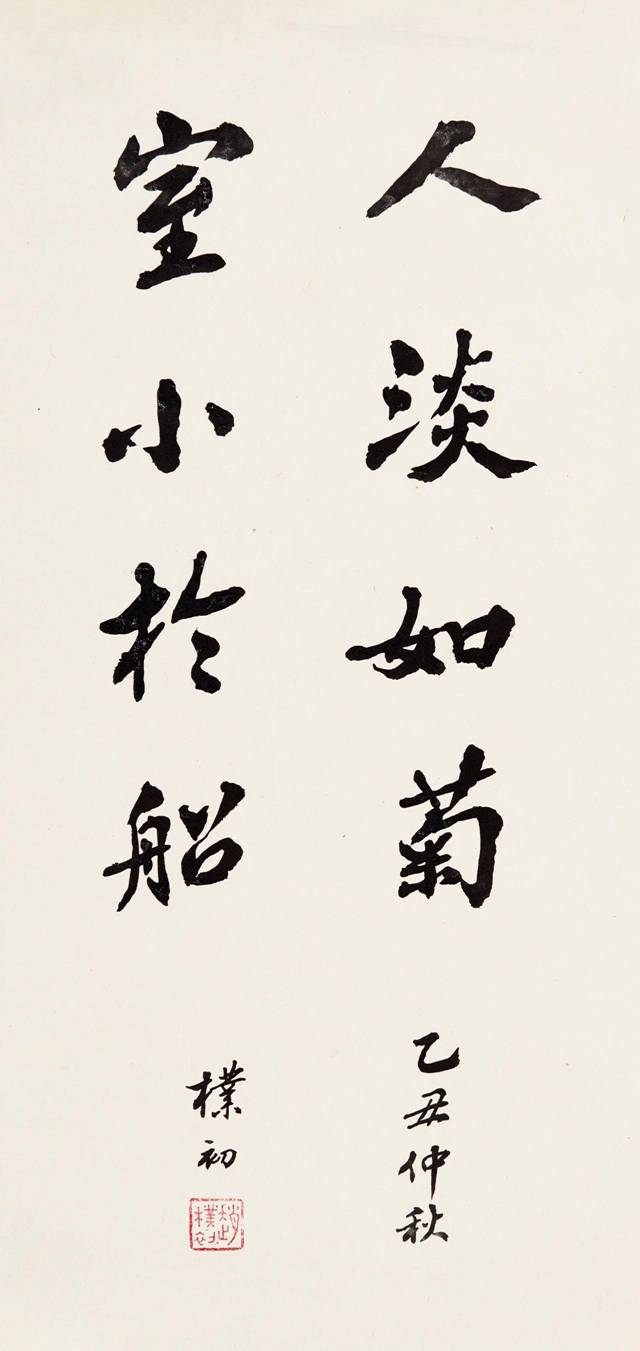 人淡如菊
乙丑仲秋
室小於船
樸初
趙樸初